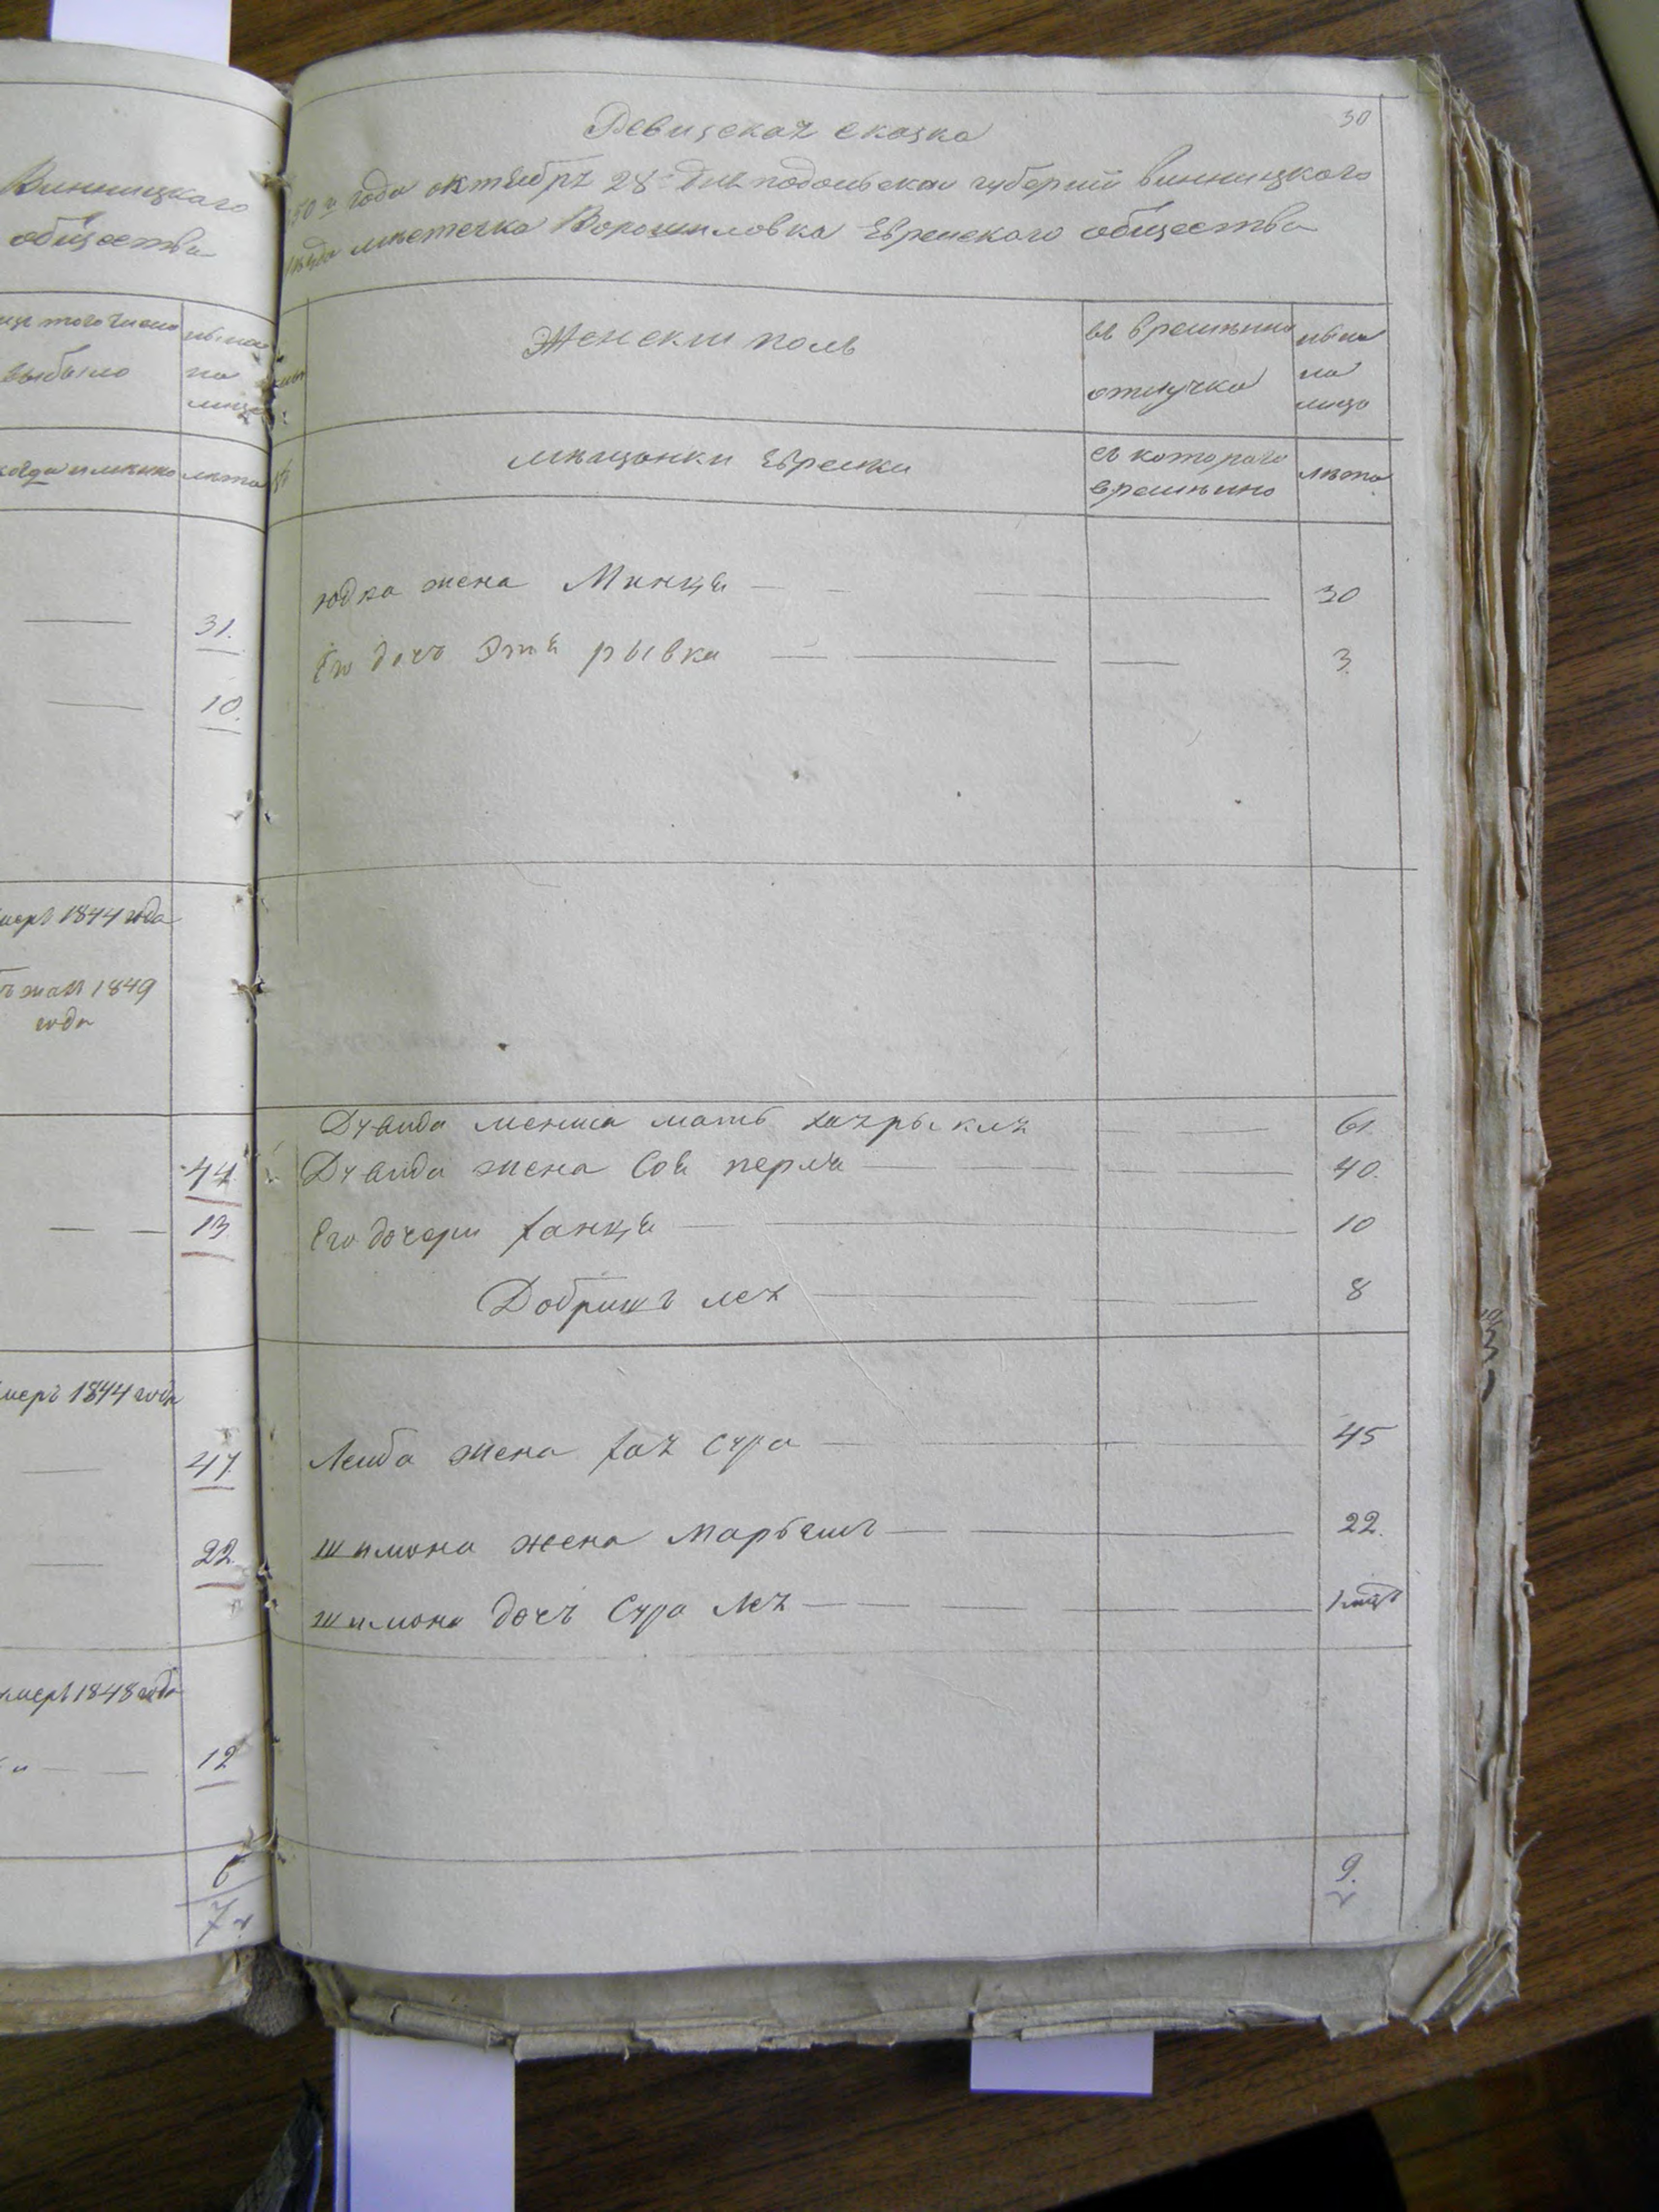 Винницкаго
общества
изъ того числа
выбыло
ныне
на
лицо
когда именно
лета
31.
10.
умеръ 1844 года
1849
года
44.
13
умеръ 1844 года
47.
22.
умеръ 1848 года
12
6
7
30
Ревизская сказка
50 го года октября 28 дня подольскаи губернии винницкого
уезда местечка Ворошиловка Евреиского общества
Женскии полъ
въ времянно
отлучка
ныне
на
лицо
мещанки Евреики
съ которого
времянно
лета
юдка жена Минця
30
Его дочъ Этя рывка
3.
Дувида менша мать хаярыкля
61.
Дувида жена Соя перля
40.
Его дочери ханця
10
Добришъ лея
8
Леиба жена хая сура
45
шимона жена Марьяшъ
22.
шимона дочъ Сура Лея
9.